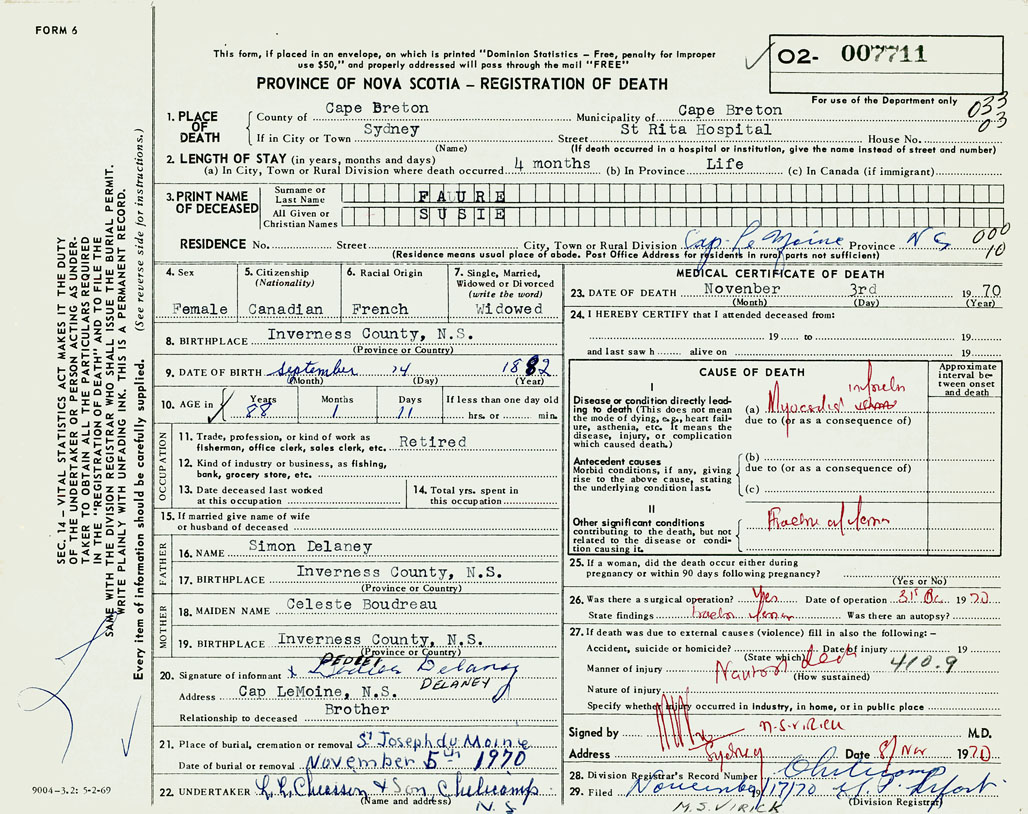 FORM 6
This form, if placed in an envelope, on which is printed "Dominion Statistics – Free, penalty for improper
use $50," and properly addressed will pass through the mail "FREE"
O2- 007711
PROVINCE OF NOVA SCOTIA – REGISTRATION OF DEATH
For use of the Department only
033
03
1. PLACE OF DEATH
County of Cape Breton Municipality of Cape Breton
If in City or Town Sydney Street St Rita Hospital House No.
(Name) (If death occurred in a hospital or institution, give the name instead of street and number)
2. LENGTH OF STAY (in years, months and days)
(a) In City, Town or Rural Division where death occurred 4 months (b) In Province Life (c) In Canada (if immigrant)
3. PRINT NAME OF DECEASED
Surname or Last Name FAURE
All Given or Christian Names SUSIE
RESIDENCE No. Street City, Town or Rural Division Cap Le Moine Province N S
000
10
(Residence means usual place of abode. Post Office Address for residents in rural parts not sufficient)
4. Sex
Female
5. Citizenship
(Nationality)
Canadian
6. Racial Origin
French
7. Single, Married,
Widowed or Divorced
(write the word)
Widowed
8. BIRTHPLACE Inverness County, N.S.
(Province or Country)
9. DATE OF BIRTH September 14 1882
(Month) (Day) (Year)
10. AGE in
Years Months Days If less than one day old
88 1 11 hrs. or min.
OCCUPATION
11. Trade, profession, or kind of work as
fisherman, office clerk, sales clerk, etc. Retired
12. Kind of industry or business, as fishing,
bank, grocery store, etc.
13. Date deceased last worked
at this occupation
14. Total yrs. spent in
this occupation
15. If married give name of wife
or husband of deceased
FATHER
16. NAME Simon Delaney
17. BIRTHPLACE Inverness County, N.S.
(Province or Country)
MOTHER
18. MAIDEN NAME Celeste Boudreau
19. BIRTHPLACE Inverness County, N.S.
(Province or Country)
20. Signature of informant x Delaney
DELANEY
Address Cap LeMoine, N.S.
Relationship to deceased Brother
21. Place of burial, cremation or removal St Joseph du Moine
Date of burial or removal November 5th 1970
22. UNDERTAKER Chiasson & Son Cheticamp
(Name and address) N.S
MEDICAL CERTIFICATE OF DEATH
23. DATE OF DEATH November 3rd 1970
(Month) (Day) (Year)
24. I HEREBY CERTIFY that I attended deceased from:
19 to 19
and last saw h alive on 19
CAUSE OF DEATH
Approximate interval between onset and death
I
Disease or condition directly leading to death (This does not
mean the mode of dying, e.g., heart failure, asthenia, etc. It means the
disease, injury, or complication
which caused death.)
(a) Myocardial
due to (or as a consequence of)
Antecedent causes
Morbid conditions, if any, giving
rise to the above cause, stating
the underlying condition last.
(b)
due to (or as a consequence of)
(c)
II
Other significant conditions
contributing to the death, but not
related to the disease or condition causing it.
25. If a woman, did the death occur either during
pregnancy or within 90 days following pregnancy?
(Yes or No)
26. Was there a surgical operation? Yes Date of operation 31st 1970
State findings Was there an autopsy?
27. If death was due to external causes (violence) fill in also the following: –
Accident, suicide or homicide? Date of injury 19
(State which)
Manner of injury 410.9
(How sustained)
Nature of injury
Specify whether injury occurred in industry, in home, or in public place
Signed by N.S. VIRICK M.D.
Address Sydney Date 8/Nov 1970
28. Division Registrar's Record Number Cheticamp
29. Filed November 17/70
(Division Registrar)
M.S. VIRICK
SEC. 14 – VITAL STATISTICS ACT MAKES IT THE DUTY
OF THE UNDERTAKER OR PERSON ACTING AS UNDER-
TAKER TO OBTAIN ALL THE PARTICULARS REQUIRED
IN THE "REGISTRATION OF DEATH" AND TO FILE THE
SAME WITH THE DIVISION REGISTRAR WHO SHALL ISSUE THE BURIAL PERMIT.
WRITE PLAINLY WITH UNFADING INK. THIS IS A PERMANENT RECORD.
Every item of information should be carefully supplied. (See reverse side for instructions.)
9004–3.2: 5-2-69